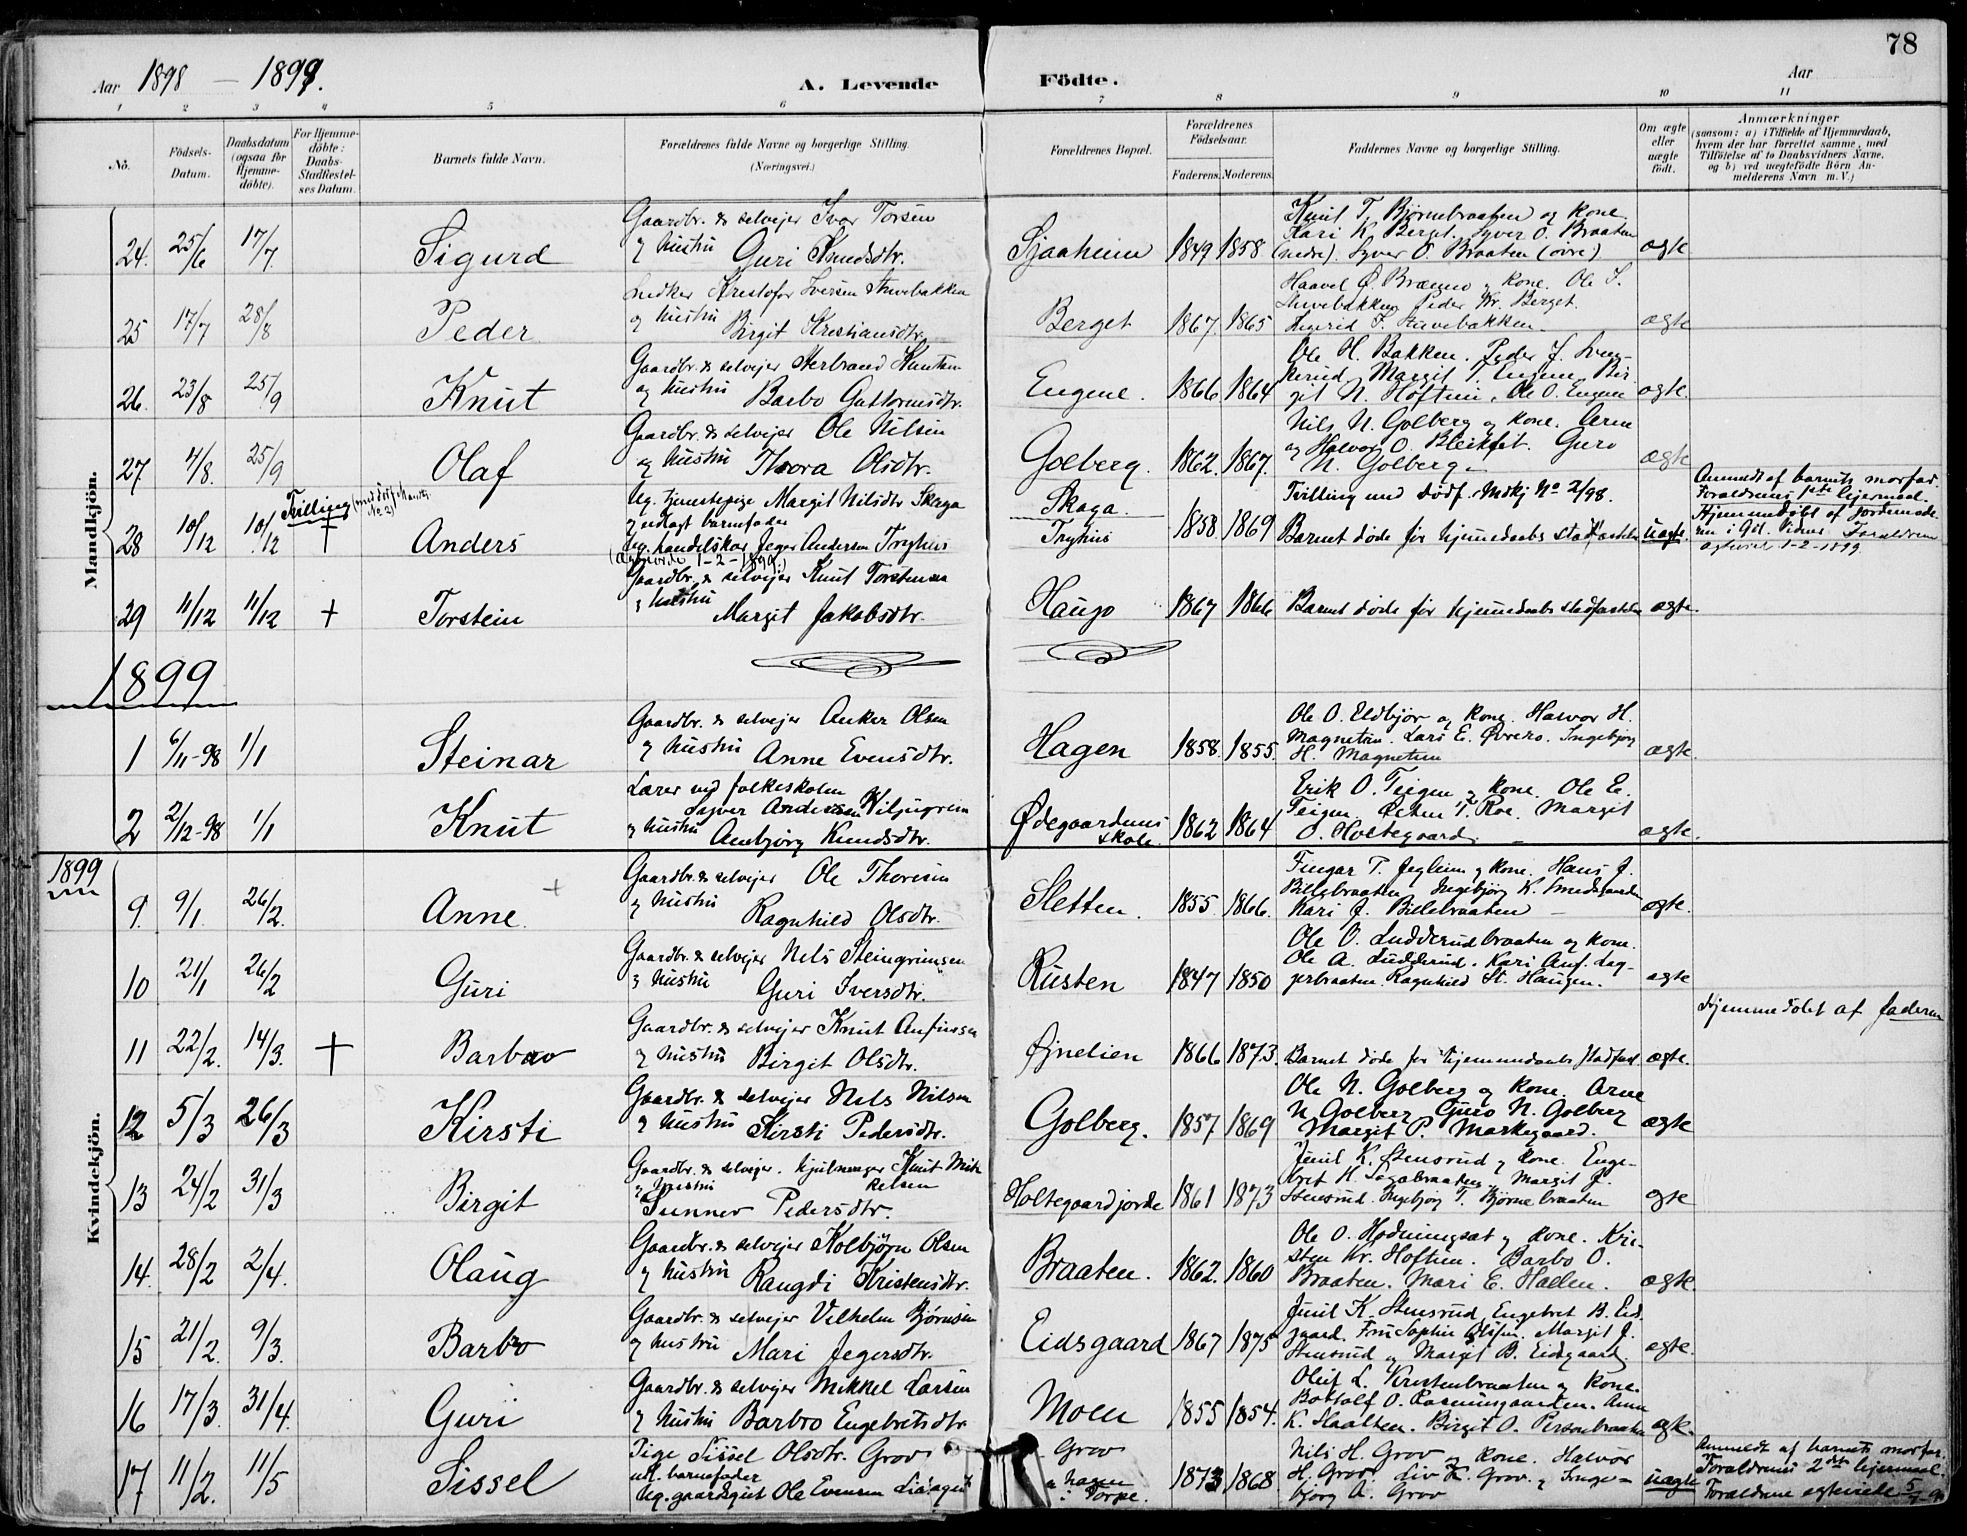 78
Aar 1898 – 1899. A. Levende Födte. Aar
1 2 3 4 5 6 7 8 9 10 11
Nô. Födsels-Datum. Daabsdatum (ogsaa for Hjemme-döbte). For Hjemme-döbte: Daabs-Stadfæstel-ses Datum. Barnets fulde Navn. Forældrenes fulde Navne og borgerlige Stilling. (Næringsvei.) Forældrenes Bopæl. Forældrenes Födselsaar. Faderens. Moderens. Faddernes Navne og borgerlige Stilling. Om ægte eller uægte födt. Anmærkninger (saasom: a) i Tilfælde af Hjemmedaab, hvem der har forrettet samme, med Tilföielse af to Daabsvidners Navne, og b) ved uægtefödte Börn An-melderens Navn m. V.)
Mandkjön.
24. 25/6 17/7. Sigurd Gaardbr. & selvejer Ivar Torsen
og hustru Guri Knudsdtr. Sjaaheim 1849 1858 Knut T. Bjørnebraaten og kone.
Kari K. Berget. Syver O. Braaten
(nedre). Syver O. Braaten (øvre) ægte
25 17/7 28/8 Peder Kristofer Iversen
og hustru Birgit Kristiansdtr. Berget 1867. 1865 og kone. Ole
Peder Kr. Berget.
ægte
26. 23/8 25/9 Knut Gaardbr. & selvejer Herbrand Knutsen
og hustru Barbo Guttormsdtr. Eugene. 1866 1864 Ole H. Bakken. Peder
Margit T. Eugene. Bir-
git N. Hoftun. Ole O. Eugene ægte.
27 4/8. 25/9 Olaf Gaardbr. & selvejer Ole Nilsen
og hustru Thora Olsdtr. Golberg. 1862. 1867. Nils N. Golberg og kone. Arne
og Halvor O. Bleiklet. Guro
N. Golberg ægte
28 10/12 10/12 Tvilling (med dødf. Mandkj. No 2) † Anders Ug. tjenestepige Margit Nilsdtr Skaga
og udlagt barnefader
ug. handelskar Jeger Andersen Tryhus
1-2-1899.) Skaga.
Tryhus 1858 1869 Tvilling med dødf. Mdkj No 2/98.
Barnet døde før hjemmedaabs stadfæstelse uægte. Anmeldt af barnets morfar.
Forældrenes 1ste lejermaal.
Hjemmedøbt af jordemode-
ren i Gol. Vidner Forældrene
ægteviet 1-2-1899
29 11/12 11/12 † Torstein Gaardbr. & selvejer Knut Torstensen
& hustru Margit Jakobsdtr. Haugo 1867 1866 Barnet døde før hjemmedaabs stadfæstelse ægte.
1899
1 6/11-98 1/1 Steinar Gaardbr. & selvejer Anker Olsen
og hustru Anne Evensdtr. Hagen 1858. 1855. Ole O. Eldbjør og kone. Halvor H.
Magnetun. Lars E. Øvrero. Ingebjørg
H. Magnetun ægte.
2 2/12-98 1/1 Knut Lærer ved folkeskolen
Sajver Andersen Kiljugrein
og hustru Ambjørg Knudsdtr. Ødegaardens
skole. 1862 1864 Erik O. Teigen og kone. Ole E.
Teigen. Østen T. Roe. Margit
O. Holtegaard. ægte.
1899
Kvindekjön.
9. 9/1. 26/2. Anne. Gaardbr. & selvejer Ole Thoresen
og hustru Ragnhild Olsdtr. Sletten. 1855 1866. Fingar T. Jegleim og kone. Hans J.
Billebraaten. Ingebjørg K.
Kari J. Billebraaten ægte.
10 21/1 26/2 Guri Gaardbr. & selvejer Nils Steingrimsen
& hustru Guri Iversdtr. Rusten 1847 1850 Ole O. Ludderudbraaten og kone.
Ole A. Ludderud. Kari Anf. Lag-
gerbraaten. Ragnhild St. Haugen. ægte
11 22/2. 14/3. † Barbro Gaardbr. & selvejer Knut Anfinsen
og hustru Birgit Olsdtr. Øjnelien 1866 1873. Barnet døde før hjemmedaabs stadfæst ægte. Hjemmedøbt af faderen
12 5/3 26/3 Kirsti Gaardbr. & selvejer Nils Nilsen
og hustru Kirsti Pedersdtr. Golberg. 1857 1869 Ole N. Golberg og kone. Arne
N. Golberg Guro N. Golberg
Margit P. Markegaard. ægte
13 24/2 31/3 Birgit Gaardbr. & selvejer. hjulmager Knut Mik-
og hustru kelsen
Sunnev Pedersdtr. Holtegaardjorde 1861 1873 Juul K. Stensrud og kone. Enge-
bret H. Margit J.
Stensrud. Ingebjørg T. Bjørnebraaten ægte
14. 28/2 2/4. Olaug Gaardbr. & selvejer Kolbjørn Olsen
og hustru Rangdi Kristensdtr. Braaten. 1862. 1860 Ole O. Hødningsæt og kone. Kri-
sten Kr. Hoftun. Barbo O.
Braaten. Mari E. Hallen. ægte.
15 21/2. 9/3. Barbro Gaardbr. & selvejer Vilhelm Bjørnsen
og hustru Mari Jegersdtr. Eidsgaard 1867 1875 Juul K. Stensrud, Engebret B. Eids-
gaard. Fru Sophie Olsen. Margit J.
Stensrud og Margit B. Eidsgaard. ægte.
16 17/3. 31/4. Guri Gaardbr. & selvejer Mikkel Larsen
og hustru Barbro Engebretsdtr. Moen 1855 1854. Oleif L. Kristenbraaten og kone.
Bottolf O. Rosmusgaarden. Anne
K. Haalten. Birgit O. Personbraaten ægte.
17 11/2. 11/5 Sissel Pige Sissel Olsdtr. Grov
udl. barnefader
ug. gaardsgut Ole Evensen Grov
Hagen
i Torpe. 1873 1868 Nils H. Grov og kone. Halvor
H. Grov. Liv K. Grov. og Inge-
bjørg A. Grov uægte Anmeldt af barnets morfar.
Forældrenes 2det lejermaal.
Forældrene ægteviet